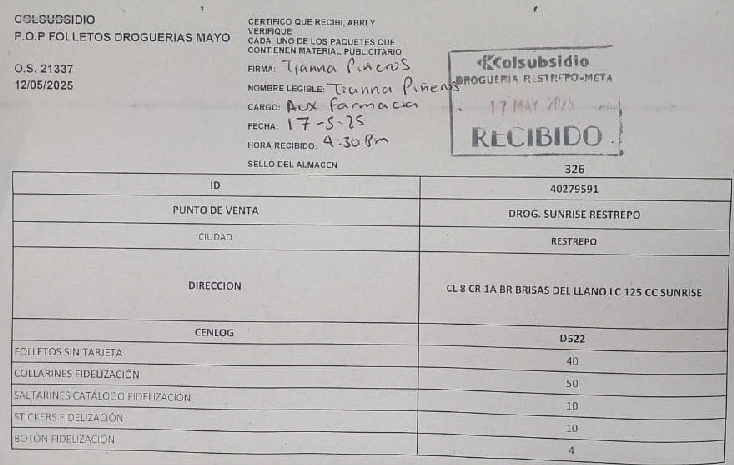 COLSUBSIDIO
P.O.P FOLLETOS DROGUERIAS MAYO
O.S. 21337
12/05/2025
CERTIFICO QUE RECIBI, ABRI Y
VERIFIQUE
CADA UNO DE LOS PAQUETES QUE
CONTENEN MATERIAL PUBLICITARIO
FIRMA: Tianna Piñeros
NOMBRE LEGIBLE: Tianna Piñeros
CARGO: Aux farmacia
FECHA: 17-5-25
HORA RECIBIDO: 4:30 Pm
SELLO DEL ALMACEN
Colsubsidio
DROGUERIA RESTREPO-META
17 MAY 2025
RECIBIDO
326
ID 40279591
PUNTO DE VENTA DROG. SUNRISE RESTREPO
CIUDAD RESTREPO
DIRECCION CL 8 CR 1A BR BRISAS DEL LLANO LC 125 CC SUNRISE
CENLOG D522
FOLLETOS SIN TARJETA 40
COLLARINES FIDELIZACIÓN 50
SALTARINES CATÁLOGO FIDELIZACIÓN 10
STICKERS FIDELIZACIÓN 10
BOTÓN FIDELIZACIÓN 4